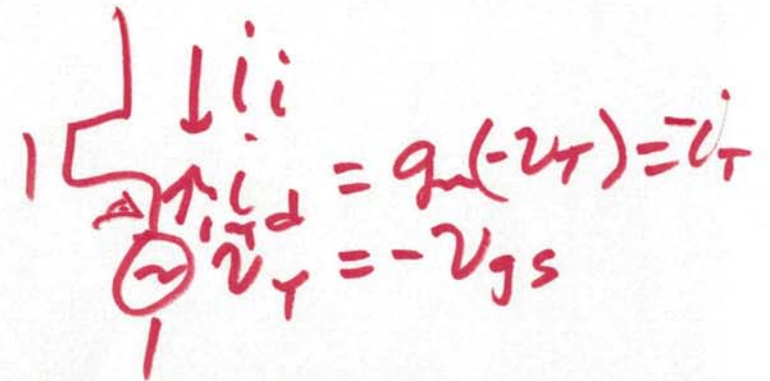 i i
i_d = g_m(-v_T) = -i_T
i_T
v_T = -v_gs